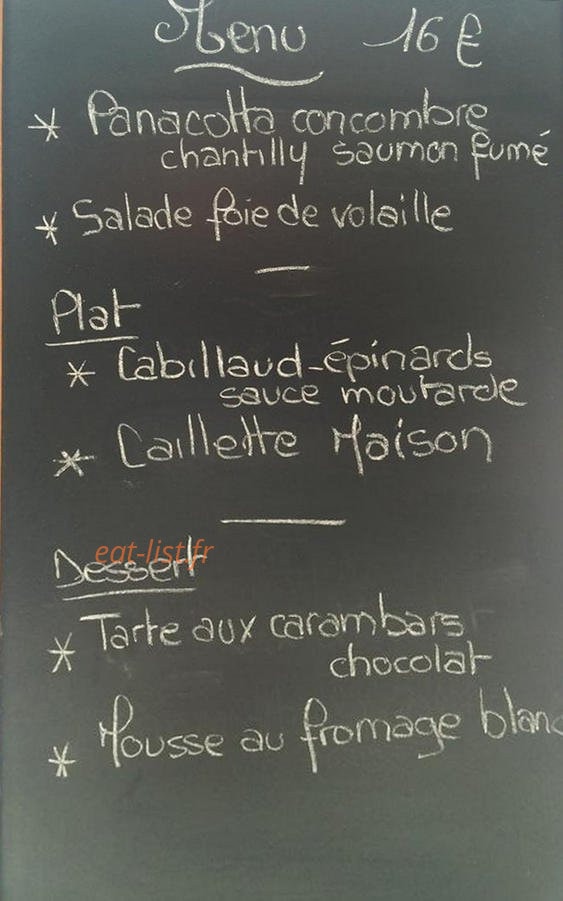 Menu 16 €
* Panacotta concombre
chantilly saumon fumé
* Salade foie de volaille
Plat
* Cabillaud-épinards
sauce moutarde
* Caillette Maison
eat-list.fr
Dessert
* Tarte aux carambars
chocolat
* Mousse au fromage blanc